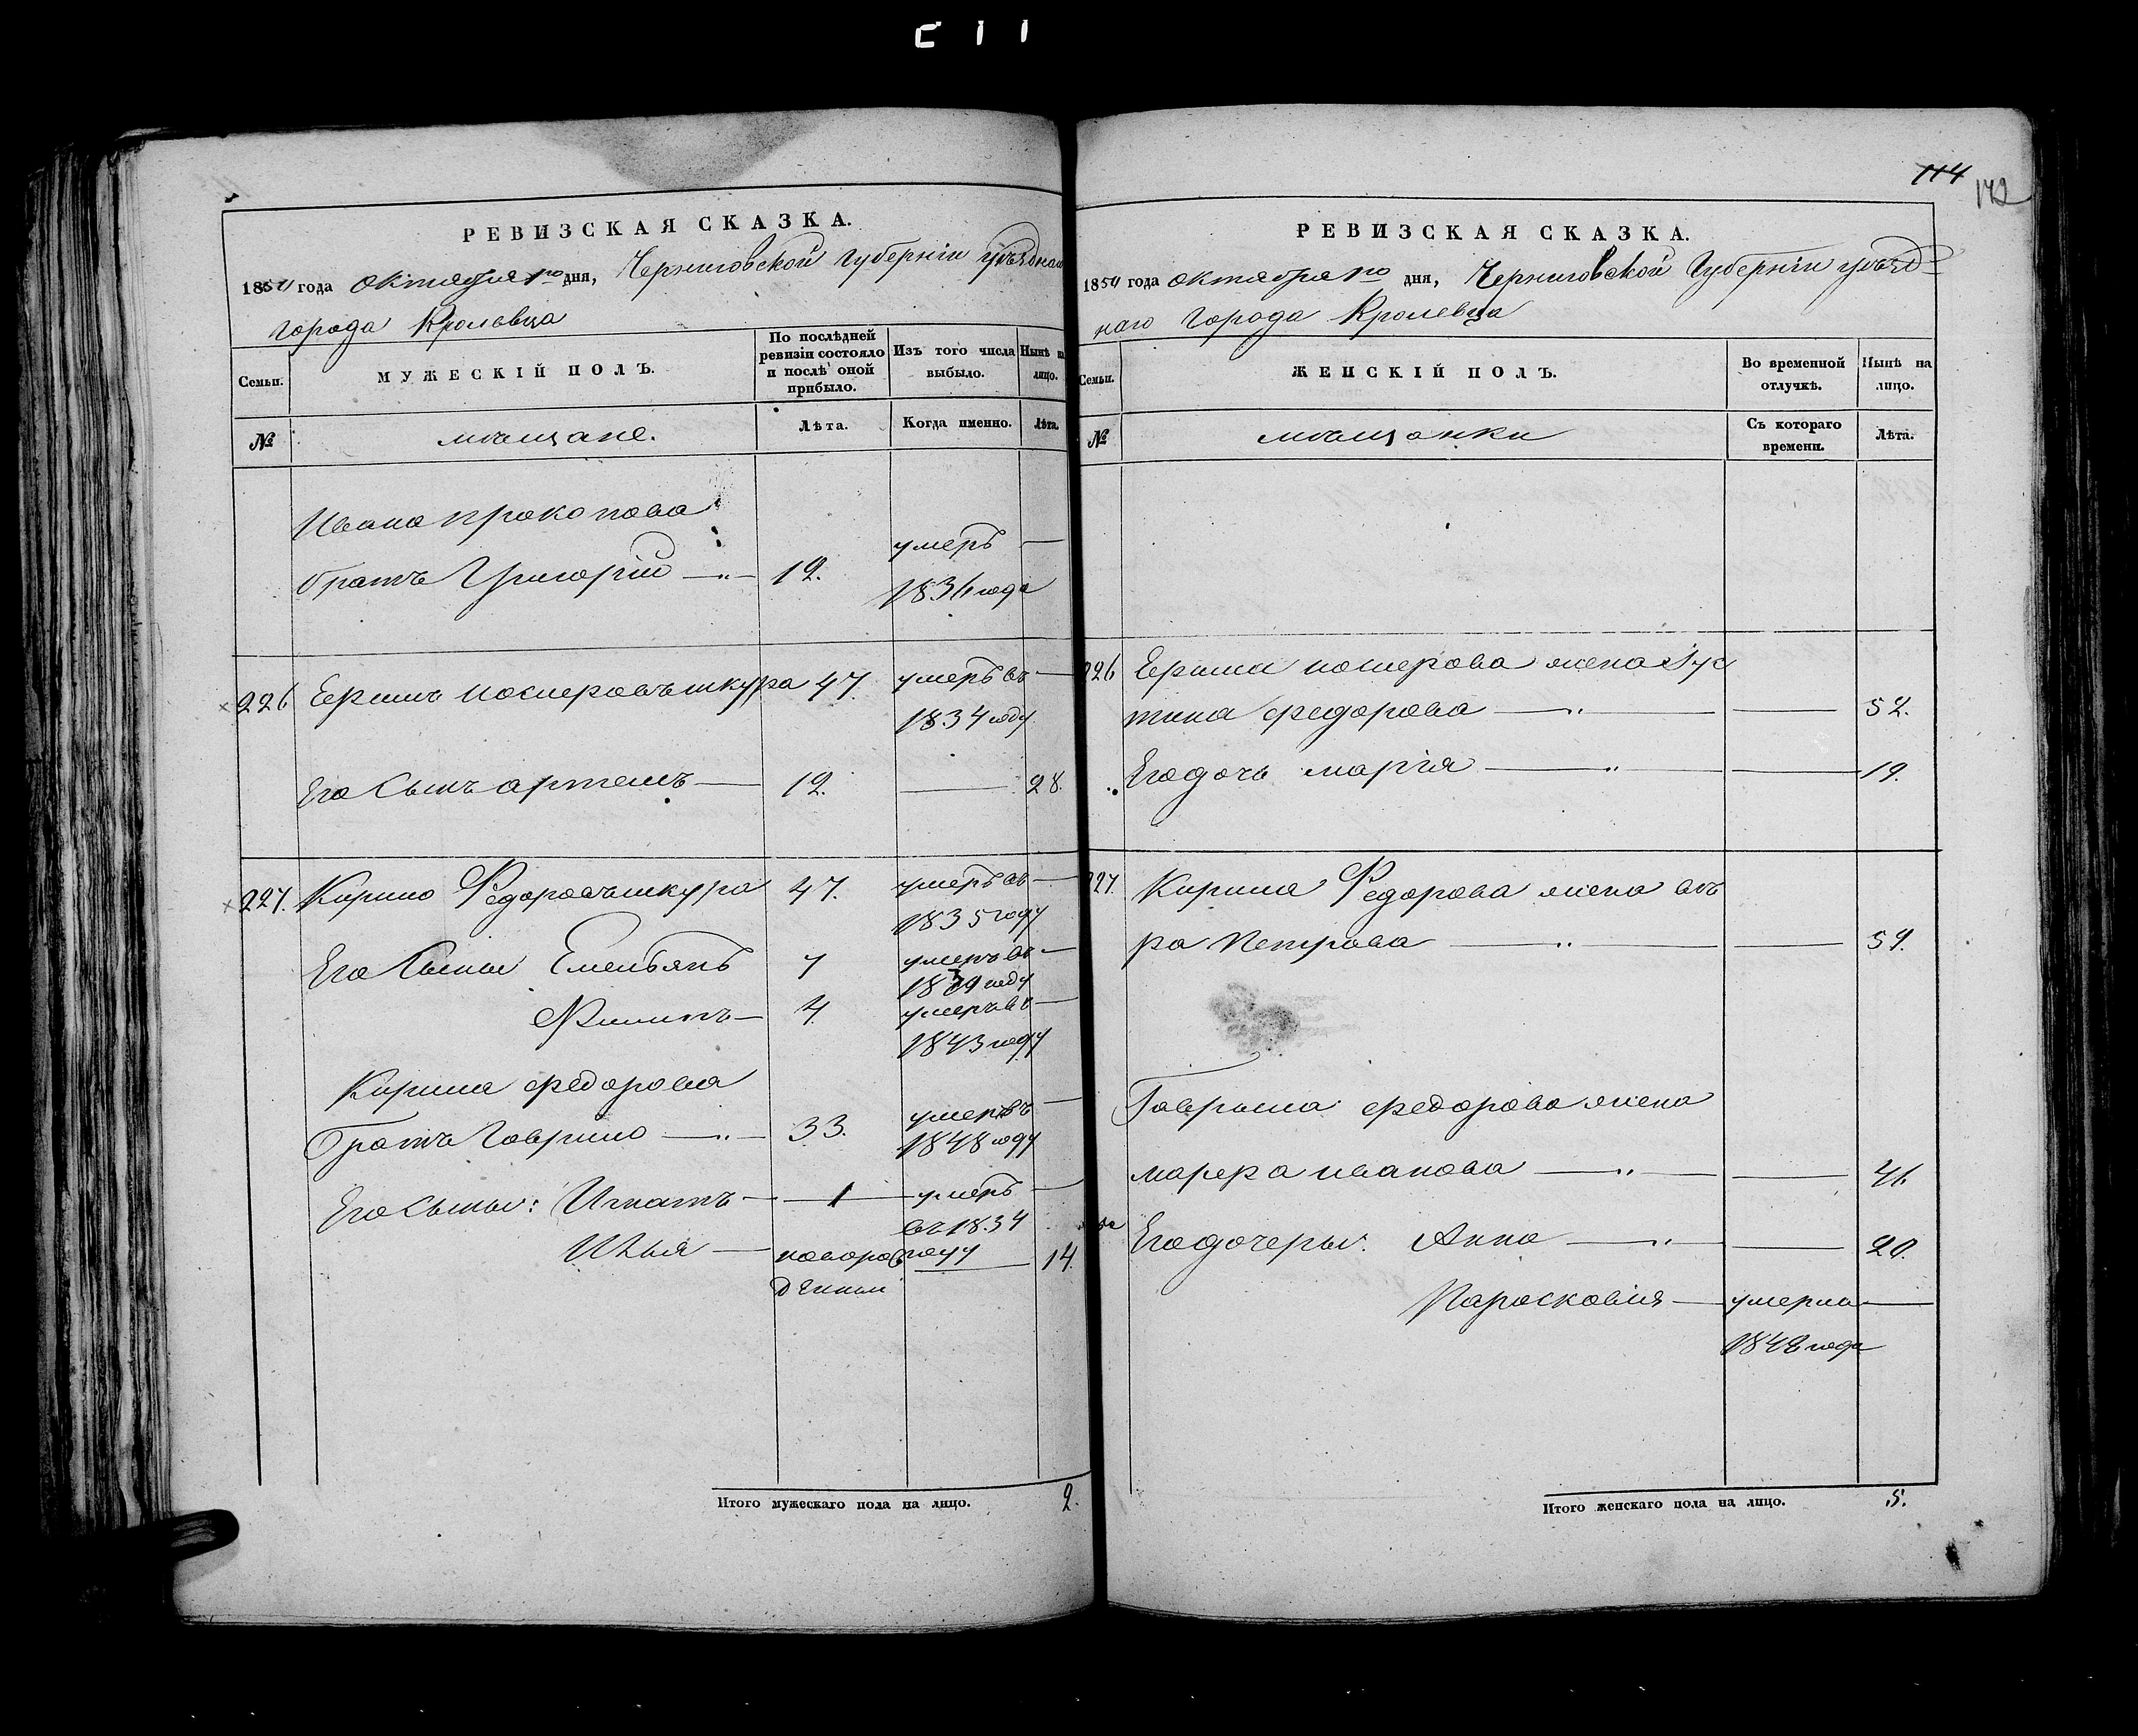 РЕВИЗСКАЯ СКАЗКА.
1850 года октября 1го дня, Черниговской губерніи уѣзднаго
города Кролевца
Семьи.
МУЖЕСКІЙ ПОЛЪ.
По послѣдней ревизіи состояло и послѣ оной прибыло.
Изъ того числа выбыло.
Нынѣ на лицо.
№
мѣщане.
Лѣта.
Когда именно.
Лѣта.
Ивана прокопова
братъ Григорій 12. умеръ
1836 года
226 шкура 47. умеръ въ
1834 году
Его Сынъ артемъ 12. 28.
227. Кирило Федоровъ шкура 47. умеръ въ
1835 году
Его Сыны Емельянъ 7 умеръ въ
1839 году
Филипъ 4 умеръ въ
1843 году
Кирила федорова
братъ Гаврило 33. умеръ въ
1848 году
Его Сыны: Игнатъ 1 умеръ
въ 1834
Илья новорож году 14.
денный
Итого мужескаго пола на лицо. 2.
114
172
РЕВИЗСКАЯ СКАЗКА.
1850 года октября 1го дня, Черниговской Губерніи уѣзд-
наго города Кролевца
Семьи.
ЖЕНСКІЙ ПОЛЪ.
Во временной отлучкѣ.
Нынѣ на лицо.
№
мѣщанки
Съ котораго времени.
Лѣта.
226 жена Іус
тина федорова 52.
Его дочь марія 19.
227. Кирила Федорова жена вѣ
ра Петрова 59.
Гаврила федорова жена
марфа иванова 46
Его дочеры: Анна 20.
Парасковія умерла
1842 года
Итого женскаго пола на лицо. 5.